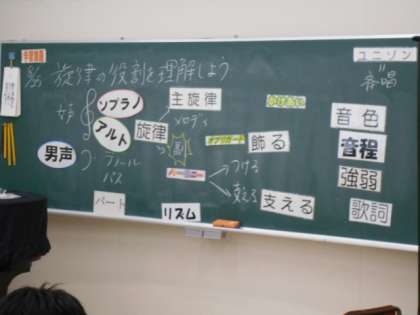 学習課題
旋律の役割を理解しよう
ユニゾン
斉唱
女声
ソプラノ
アルト
男声
テノール
バス
旋律
主旋律
メロディ
副
オブリガート
飾る
つける
支える
支える
パート
リズム
音色
音程
強弱
歌詞